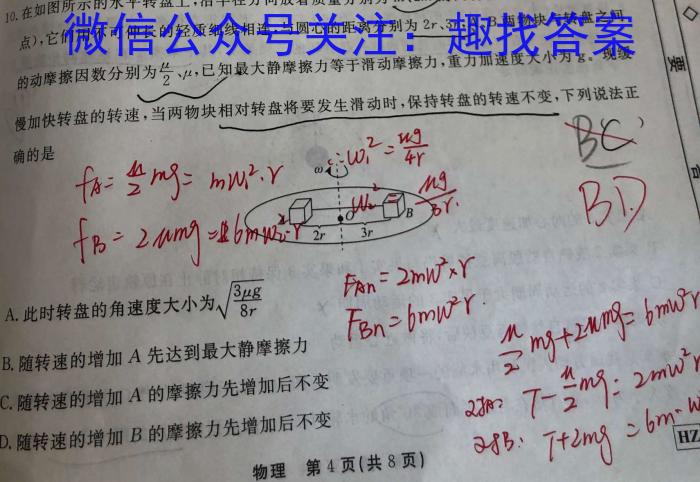 10.在如图所示的水平转盘上,沿半径方向放着质量分别为
微信公众号关注：趣找答案
点),它们用不可伸长的轻质细线相连,与圆心的距离分别为2r、3r,A、B两物块与转盘之间
的动摩擦因数分别为μ/2、μ,已知最大静摩擦力等于滑动摩擦力,重力加速度大小为g。现缓
慢加快转盘的转速,当两物块相对转盘将要发生滑动时,保持转盘的转速不变,下列说法正
确的是
BC
BD
fA= μ/2 mg= mω₁²·r
ω₁²= μg/4r
fB= 2μmg= 6mω₂²·r
ω₂² μg/3r
ω
O
B
2r
3r
FAn=2mω²×r
FBn=6mω²r
μ/2 mg+2μmg=6mω²r
T-μ/2 mg=2mω²r
T+2mg=6m·ω
A.此时转盘的角速度大小为√(3μg/8r)
B.随转速的增加A先达到最大静摩擦力
C.随转速的增加A的摩擦力先增加后不变
D.随转速的增加B的摩擦力先增加后不变
物理 第4页(共8页)
HZ